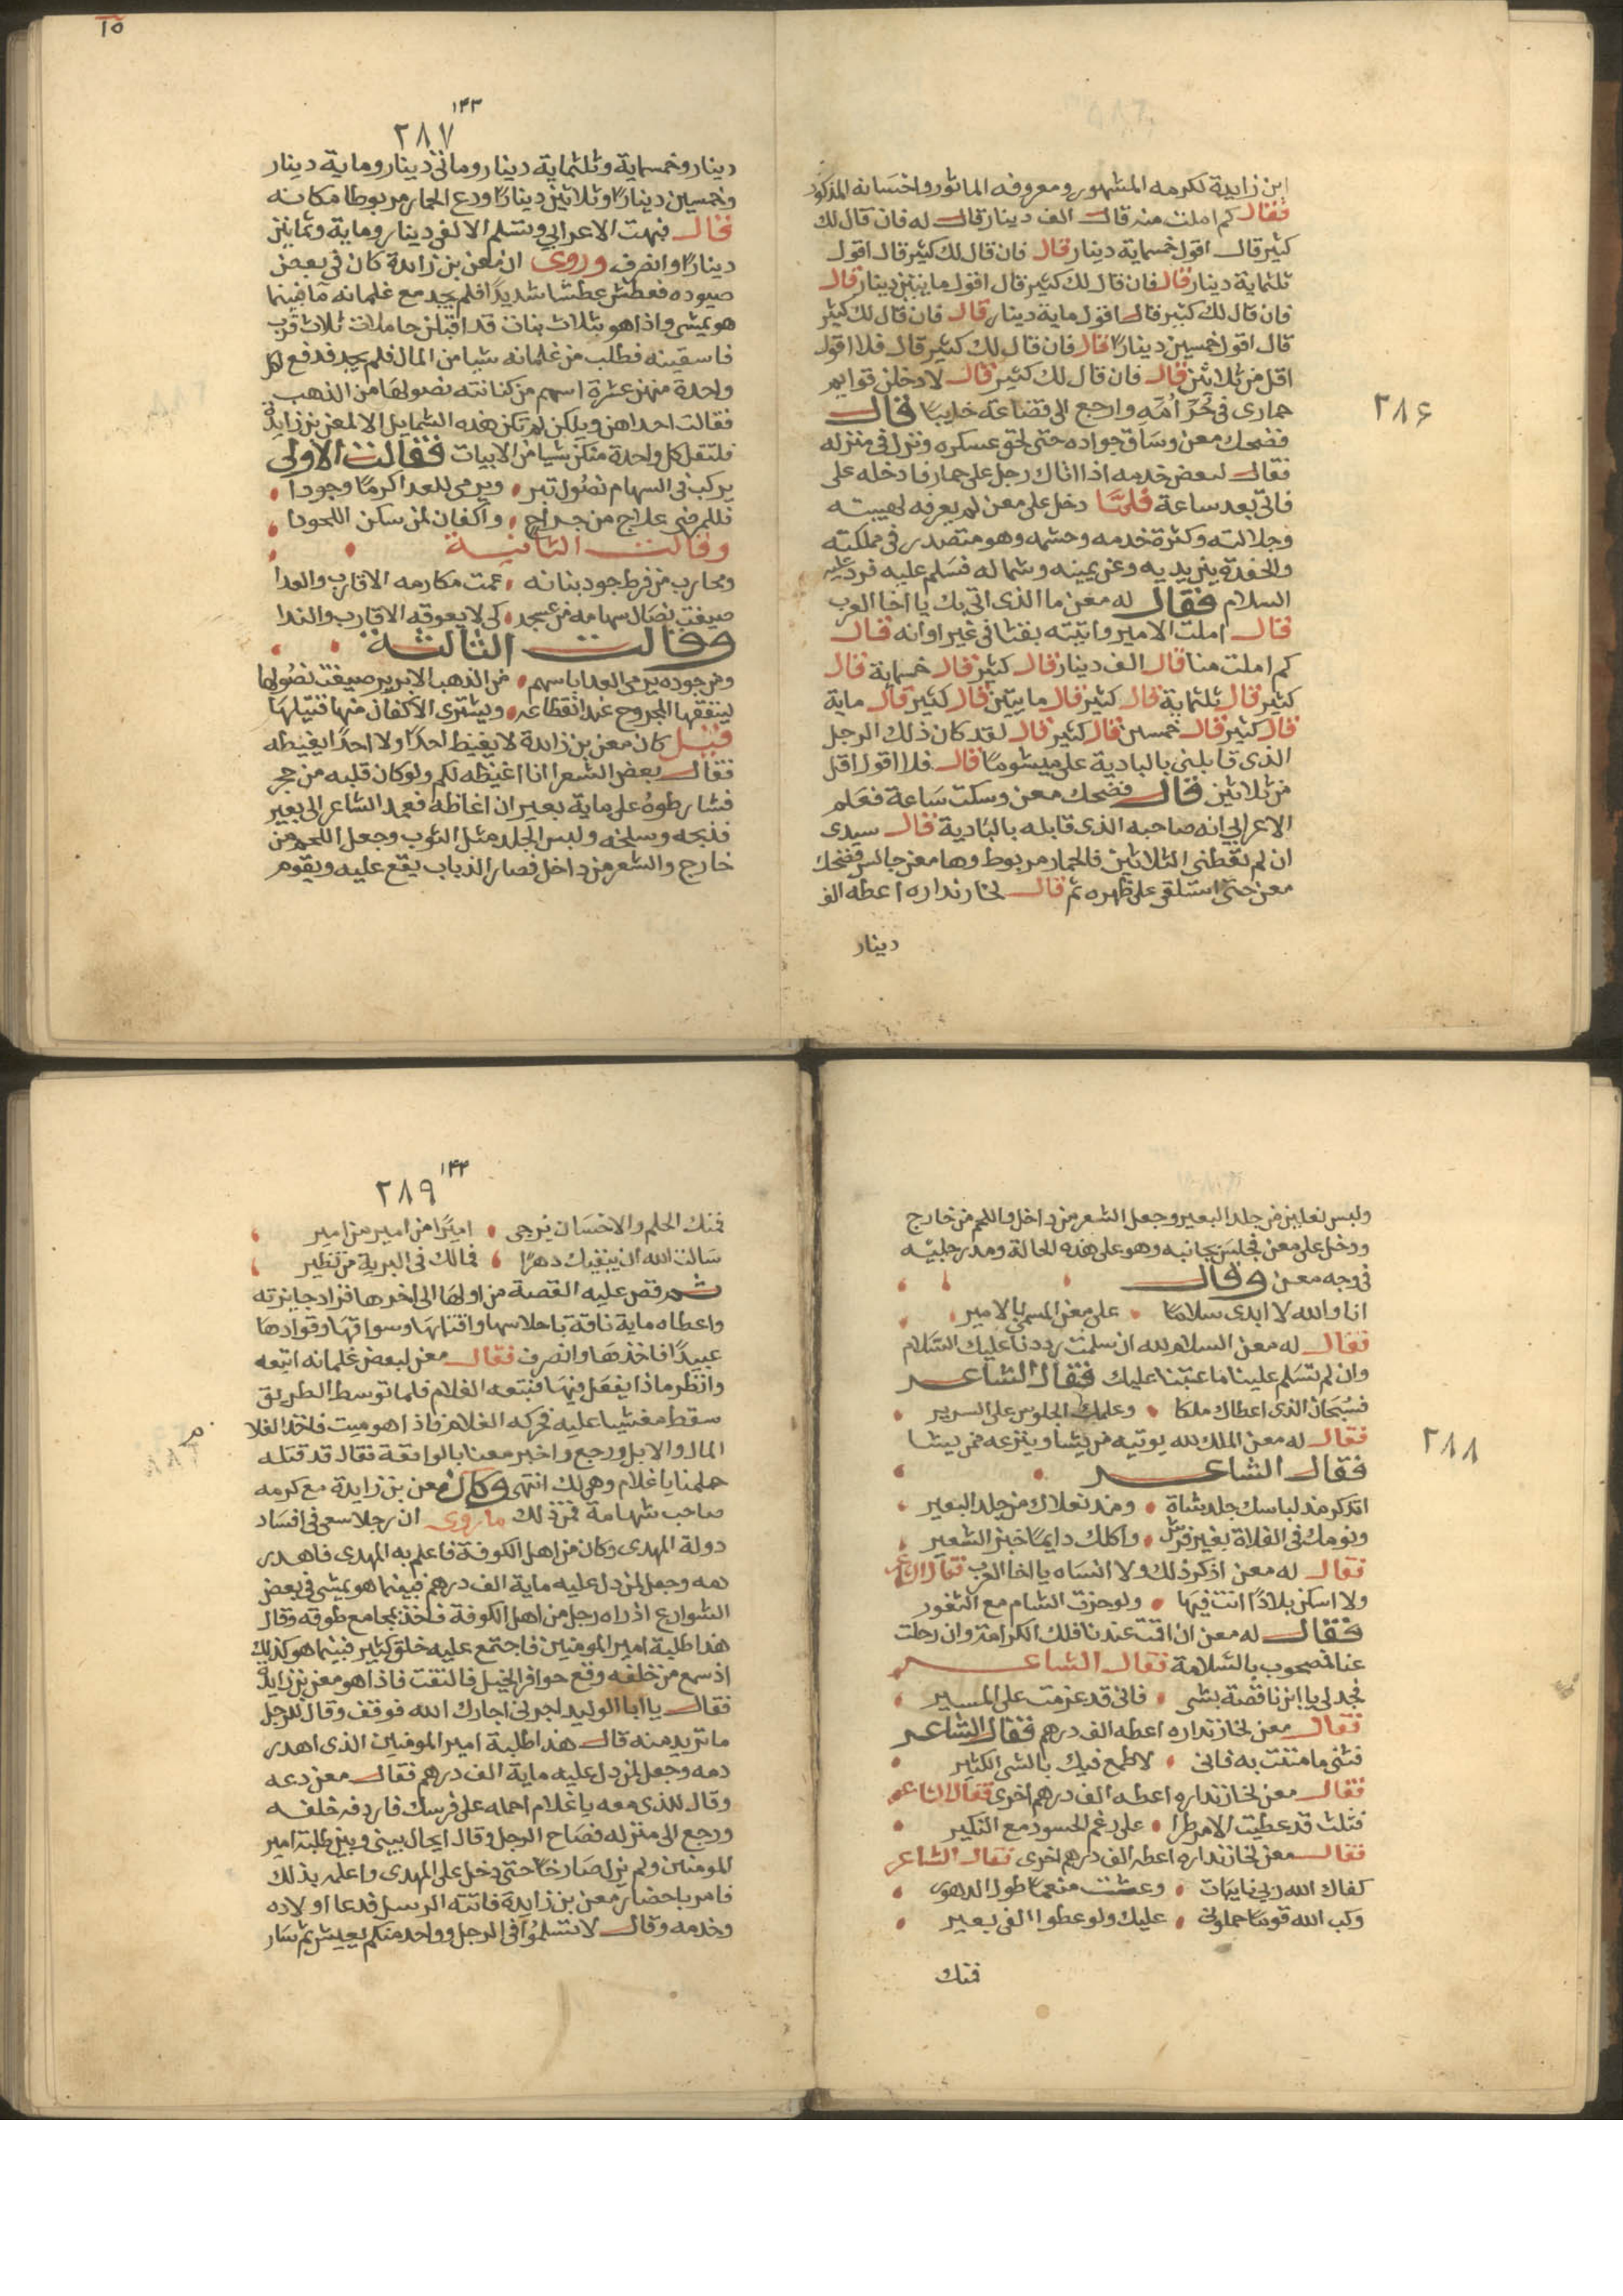 ٢٨٦
ابن زايدة لكرمه المشهور ومعروفه الماثور واحسانه المذكور
فقال كم املت منه قال الف دينار قال له فان قال لك
كثير قال اقول خمسماية دينار قال فان قال لك كثير قال اقول
ثلثماية دينار قال فان قال لك كثير قال اقول مايتين دينار قال
فان قال لك كثير قال اقول ماية دينار قال فان قال لك كثير
قال اقول خمسين دينارًا قال فان قال لك كثير قال فلا اقول
اقل من ثلاثين قال فان قال لك كثير قال لادخلن قوايم
حماري في حر امه وارجع الى قضاعة خايبًا قال
فضحك معن وساق جواده حتى لحق عسكره ونزل في منزله
فقال لبعض خدمه اذا اتاك رجل على حمار فادخله على
فاتى بعد ساعة فلما دخل على معن لم يعرفه لهيبته
وجلالته وكثرة خدمه وحشمه وهو متصدر في مملكته
والحفدة بين يديه وعن يمينه وشماله فسلم عليه فرد عليه
السلام فقال له معن ما الذى اتى بك يا اخا العرب
قال املت الامير واتيته بقثا في غير اوانه قال
كم املت منا قال الف دينار قال كثير قال خمسماية قال
كثير قال ثلثماية قال كثير قال مايتين قال كثير قال ماية
قال كثير قال خمسين قال كثير قال لقد كان ذلك الرجل
الذى قابلني بالبادية على ميشومًا قال فلا اقول اقل
من ثلاثين قال فضحك معن وسكت ساعة فعلم
الاعرابي انه صاحبه الذى قابله بالبادية قال سيدى
ان لم تعطني الثلاثين فالحمار مربوط وها معن جالس فضحك
معن حتى استلقى على ظهره ثم قال لخازنداره اعطه الف
دينار
١٥
١٤٣
٢٨٧
دينار وخمسماية وثلثماية دينار وماتى دينار وماية دينار
وخمسين دينارًا وثلاثين دينارًا ودع الحمار مربوطا مكانه
قال فبهت الاعرابي وتسلم الالفى دينار وماية وثمانين
دينارًا وانصرف وروى ان معن بن زائدة كان في بعض
صيوده فعطش عطشا شديدًا فلم يجد مع غلمانه ما فبينما
هو يمشى واذا هو بثلاث بنات قد اقبلن حاملات ثلاث قرب
فاسقينه فطلب من غلمانه شيا من المال فلم يجد فدفع لكل
واحدة منهن عشرة اسهم من كنانته نصولها من الذهب
فقالت احداهن ويلكن لم تكن هذه الشمايل الا لمعن بن زايدة
فلتقل كل واحدة منكن شيا من الابيات فقالت الاولى
يركب فى السهام نصول تبر ، ويرمى للعدا كرمًا وجودا
فللمرضى علاج من جراح ، واكفان لمن سكن اللحودا
وقالت الثانية
ومحارب من فرط جود بنانه ، عمت مكارمه الاقارب والعدا
صيغت نصال سهامه من عسجد ، كى لا يعوقه الاقارب والندا
وقالت الثالثة
ومن جوده يرمى العدا باسهم ، من الذهب الابريز صيغت نصولها
لينفقها المجروح عند انقطاعه ، ويشترى الاكفان منها قتيلها
قيل كان معن بن زائدة لا يغيظ احدًا ولا احدًا يغيظه
فقال بعض الشعرا انا اغيظه لكم ولو كان قلبه من حجر
فشارطوهُ على ماية بعير ان اغاظه فعمد الشاعر الى بعير
فذبحه وسلخه ولبس الجلد مثل الثوب وجعل اللحم من
خارج والشعر من داخل فصار الذباب يقع عليه ويقوم
٢٨٨
ولبس نعلين من جلد البعير وجعل الشعر من داخل واللحم من خارج
ودخل على معن فجلس بجانبه وهو على هذه الحالة ومد رجليه
في وجه معن وقال
انا والله لا ابدى سلامًا ، على معن المسمى بالامير
فقال له معن السلام لله ان سلمت رددنا عليك السلام
وان لم تسلم علينا ما عتبنا عليك فقال الشاعر
فسبحان الذى اعطاك ملكا ، وعلمك الجلوس على السرير
فقال له معن الملك لله يوتيه من يشا وينزعه ممن يشا
فقال الشاعر
اتذكر مذ لباسك جلد شاة ، ومذ نعلاك من جلد البعير
ونومك فى الفلاة بغير فرش ، واكلك دايمًا خبز الشعير
فقال له معن اذكر ذلك ولا انساه يا اخا العرب فقال الشاعر
ولا اسكن بلادًا انت فيها ، ولو حزت الشام مع الثغور
فقال له معن ان اقمت عندنا فلك الكرامة وان رحلت
عنا فمصحوب بالسلامة فقال الشاعر
فجد لى يا ابن ناقصة بشى ، فانى قد عزمت على المسير
فقال معن لخازنداره اعطه الف درهم فقال الشاعر
فثنى ما مننت به فانى ، لاطمع فيك بالشى الكثير
فقال معن لخازنداره اعطه الف درهم اخرى فقال الشاعر
فثلث قد عطيت الامر طرا ، على رغم الحسود مع النكير
فقال معن لخازنداره اعطه الف درهم اخرى فقال الشاعر
كفاك الله ربى نايبات ، وعشت منعمًا طول الدهور
وكب الله قومًا حملونى ، عليك ولو عطوا الفى بعير
فمنك
١٤٤
٢٨٩
فمنك الحلم والاحسان يرجى ، اميرًا من امير من امير
سالت الله ان يبقيك دهرًا ، فمالك فى البرية من نظير
ثم قص عليه القصة من اولها الى اخرها فزاد جايزته
واعطاه ماية ناقة باحلاسها واقتابها وسواقها وقوادها
عبيدًا فاخذها وانصرف فقال معن لبعض غلمانه اتبعه
وانظر ماذا يفعل فيها فتبعه الغلام فلما توسط الطريق
سقط مغشيا عليه فحركه الغلام فاذا هو ميت فاخذ الغلام
المال والابل ورجع واخبر معنا بالواقعة فقال قد قتله
حلمنا يا غلام وهى لك انتهى وكان معن بن زايدة مع كرمه
صاحب شهامة فمن ذلك ما روى ان رجلا سعى فى افساد
دولة المهدى وكان من اهل الكوفة فاعلم به المهدى فاهدر
دمه وجعل لمن دل عليه ماية الف درهم فبينما هو يمشى فى بعض
الشوارع اذ راه رجل من اهل الكوفة فاخذ بمجامع طوقه وقال
هذا طلبة امير المومنين فاجتمع عليه خلق كثير فبينما هو كذلك
اذ سمع من خلفه وقع حوافر الخيل فالتفت فاذا هو معن بن زايدة
فقال يا ابا الوليد اجرنى اجارك الله فوقف وقال للرجل
ما تريد منه قال هذا طلبة امير المومنين الذى اهدر
دمه وجعل لمن دل عليه ماية الف درهم فقال معن دعه
وقال للذى معه يا غلام احمله على فرسك فاردفه خلفه
ورجع الى منزله فصاح الرجل وقال ايحال بينى وبين طلبة امير
المومنين ولم يزل صارخًا حتى دخل على المهدى واعلمه بذلك
فامر باحضار معن بن زايدة فاتته الرسل فدعا اولاده
وخدمه وقال لا تسلموا فى الرجل وواحد منكم يعيش ثم سار